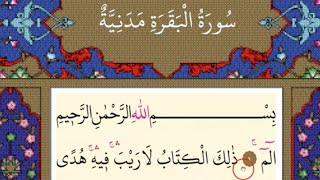 سُورَةُ الْبَقَرَةِ مَدَنِيَّةٌ
بِسْمِ اللهِ الرَّحْمٰنِ الرَّحِيمِ
الٓمٓ ۚ ذٰلِكَ الْكِتَابُ لَا رَيْبَ ۚۛ فِيهِ ۚۛ هُدًى